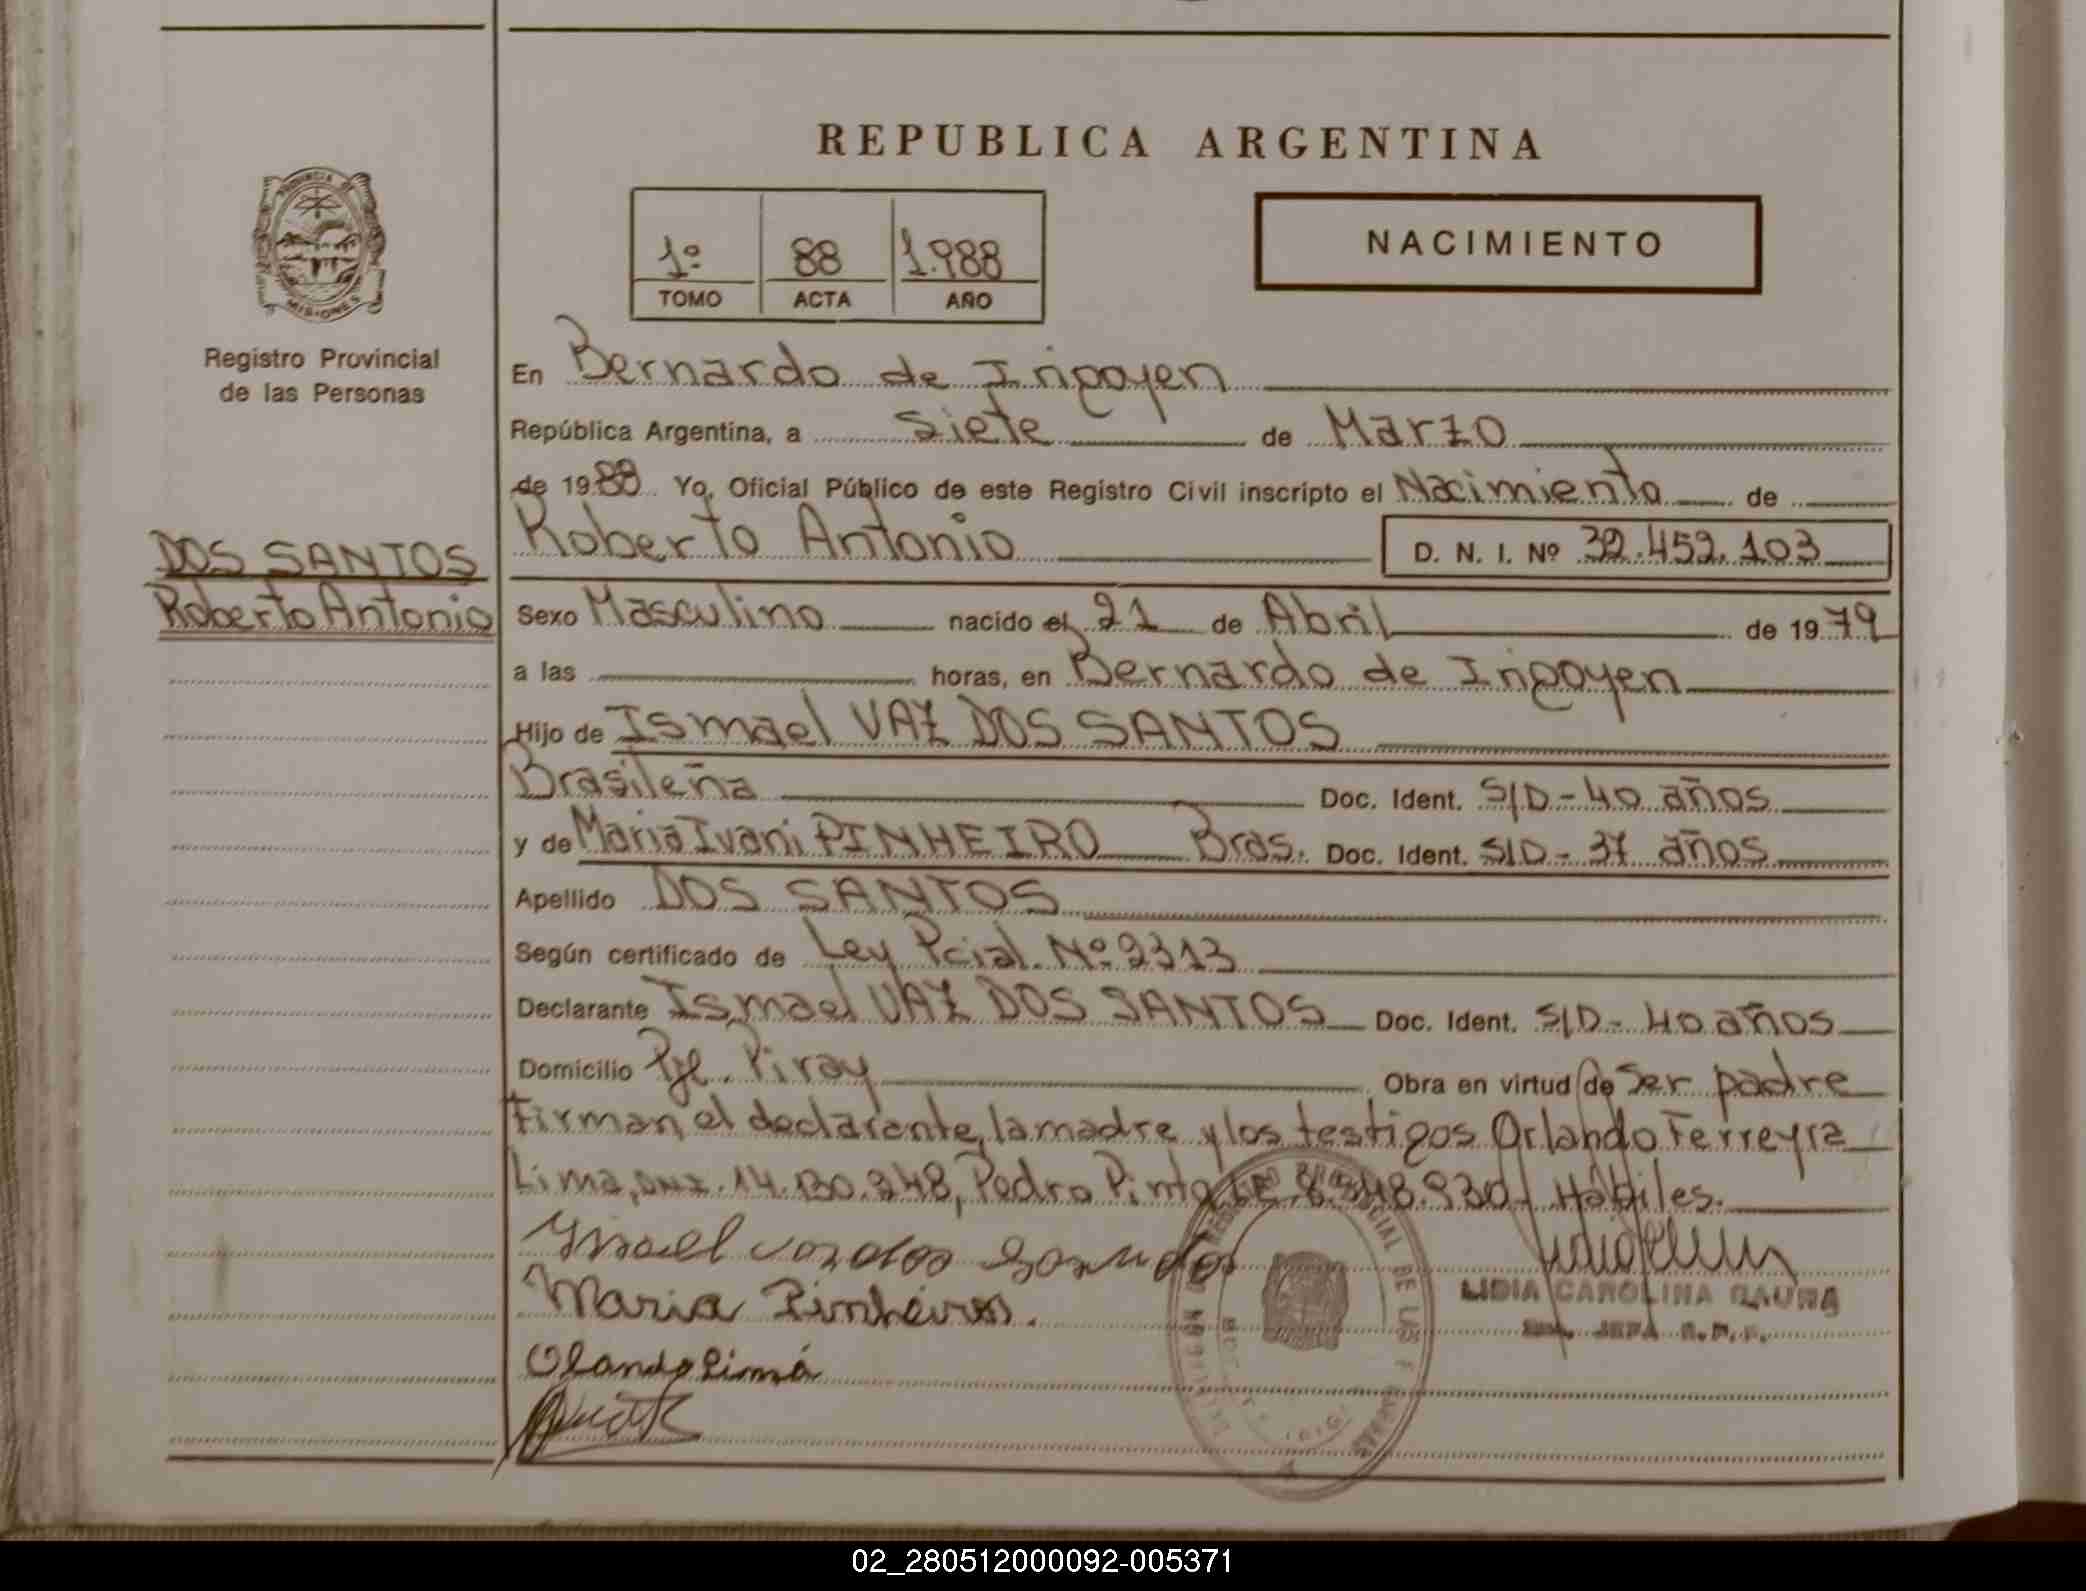 REPUBLICA ARGENTINA
PROVINCIA DE
MISIONES
Registro Provincial
de las Personas
1º 88 1.988
TOMO ACTA AÑO
NACIMIENTO
En Bernardo de Irigoyen
República Argentina, a siete de Marzo
de 1988 Yo, Oficial Público de este Registro Civil inscripto el Nacimiento de
DOS SANTOS
Roberto Antonio
Roberto Antonio D. N. I. Nº 32.452.103
Sexo Masculino nacido el 21 de Abril de 1979
a las horas, en Bernardo de Irigoyen
Hijo de Ismael VAZ DOS SANTOS
Brasileña Doc. Ident. S/D-40 años
y de Maria Ivani PINHEIRO Bras. Doc. Ident. S/D-37 años
Apellido DOS SANTOS
Según certificado de Ley Pcial. Nº 2313
Declarante Ismael VAZ DOS SANTOS Doc. Ident. S/D-40 años
Domicilio Pje. Piray Obra en virtud de Ser padre
Firman, el declarante, la madre y los testigos Orlando Ferreyra
Lima, DNI. 14.130.248, Pedro Pinto LE. 8.548.930- Hábiles.
Maria Pinheiro.
Olando Lima
LIDIA CAROLINA
JEFA R.P.P.
02_280512000092-005371